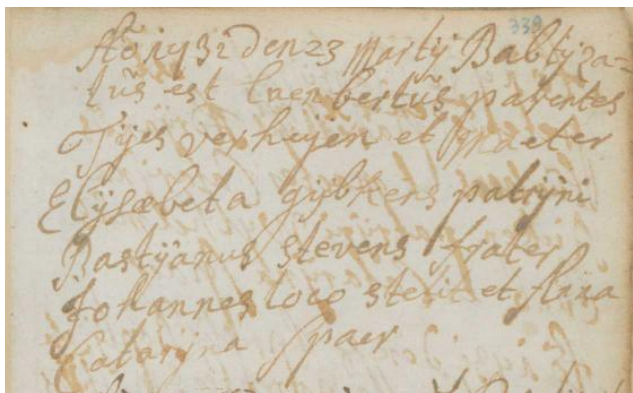 339
Año 1732 den 23 martij Babtyza=
tus est Laenbertus parentes
Tijes verheijen et maeter
Elijsæbeta gijbkens patrijni
Bastyanus stevens frater
Johannes loco stetit et
Catarijna Spaer